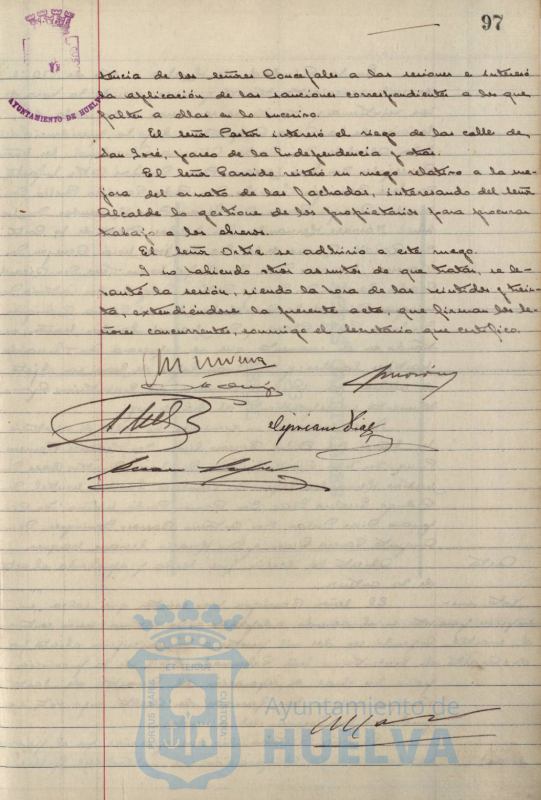 97
AYUNTAMIENTO DE HUELVA
tencia de los señores Concejales a las sesiones e interesó
la aplicación de las sanciones correspondientes a los que
falten a ellas en lo sucesivo.
El señor Pastor interesó el riego de las calle de
San José, paseo de la Independencia y otras.
El señor Garrido reiteró su ruego relativo a la me-
jora del ornato de las fachadas, interesando del señor
Alcalde lo gestione de los propietarios para procurar
trabajo a los obreros.
El señor Ortiz se adhirió a este ruego.
Y no habiendo otros asuntos de que tratar, se le-
vantó la sesión, siendo la hora de las veintidos y trein-
ta, extendiéndose la presente acta, que firman los se-
ñores concurrentes, conmigo el Secretario que certifico.
Cipriano Diaz
PORTUS MARIS ET TERRE CUSTODIA
Ayuntamiento de
HUELVA